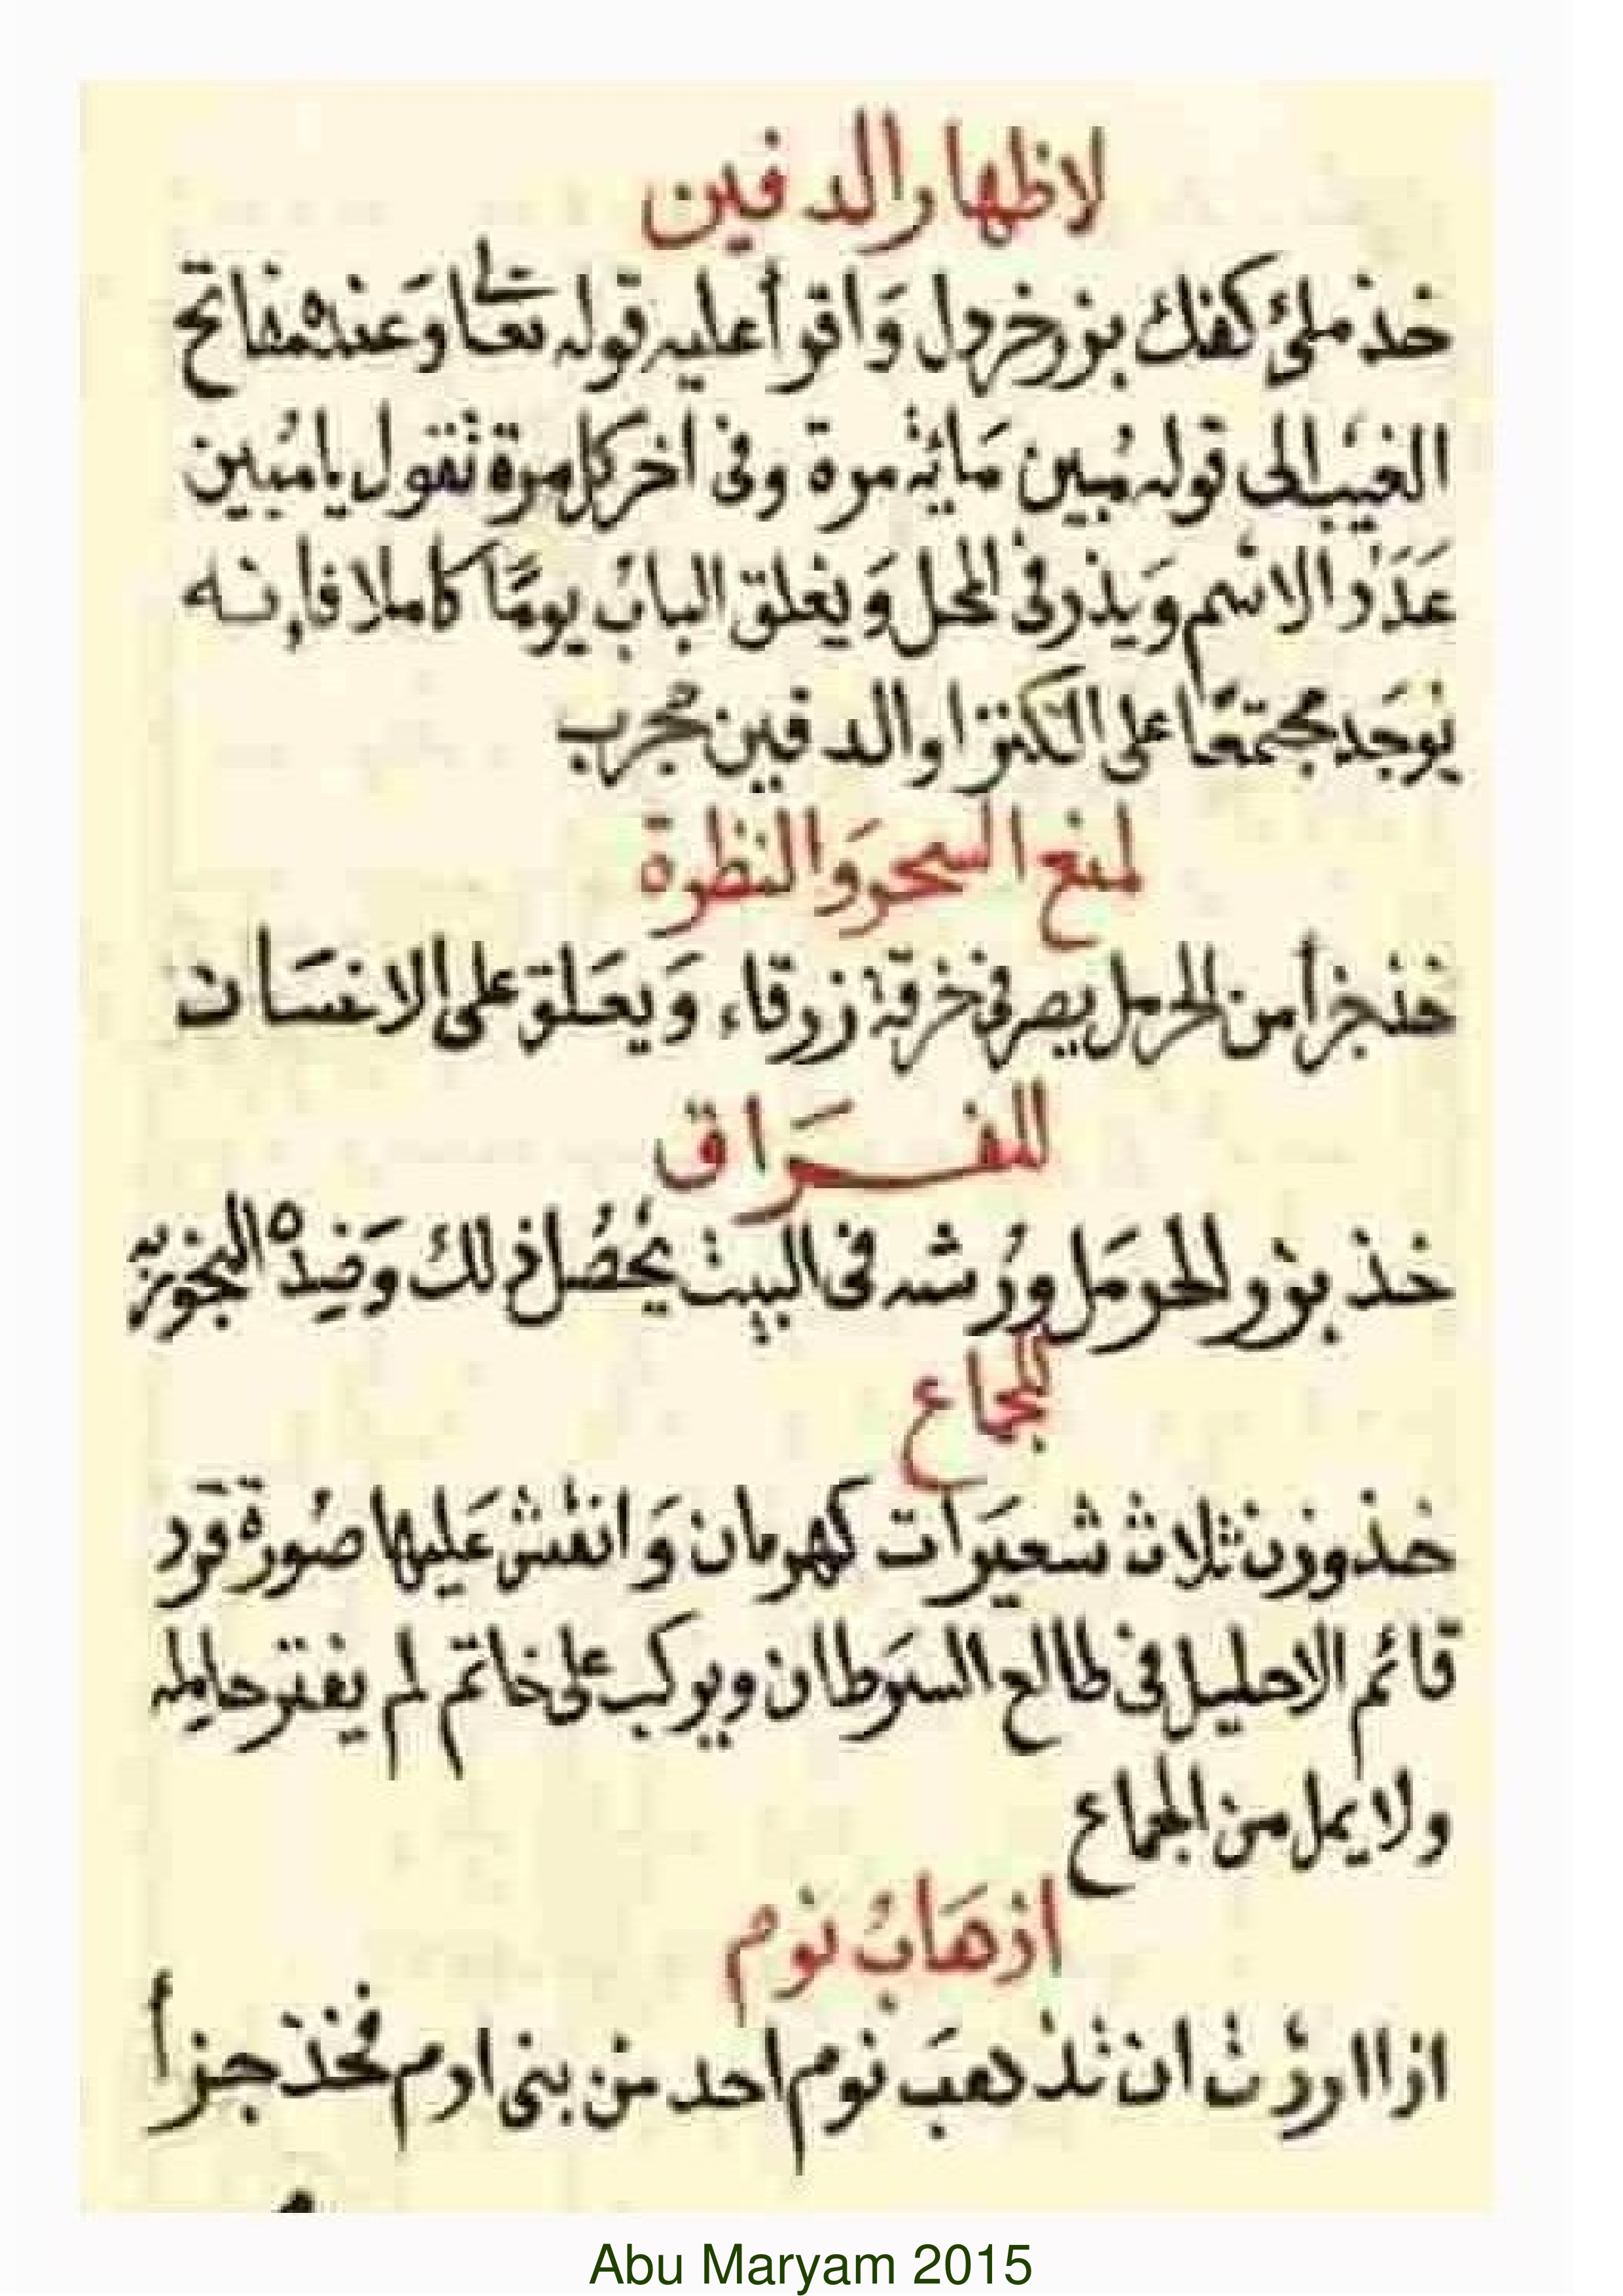 لاظهار الدفين
خذ ملئ كفك بزر خردل وَاقرأ عليه قوله تعالى وَعنده مفاتح
الغيب الى قوله مُبين مَائة مرة وفى اخر كل مرة تقول يا مُبين
عَدَد الاسْم وَيذر فى المحل وَيغلق البابُ يومًا كاملا فإنه
يوجَد مجتمعًا على الكنز او الدفين مجرب
لمنع السحر وَالنظرة
خذ جزأ من الحرمل يصر فى خرقة زرقاء وَيعَلق على الانسَان
للفرَاق
خذ بزر الحرمَل ورُشه فى البيت يُحصُل ذلك وَضِده البخور به
للجماع
خذ وزن ثلاث شعيرَات كهرمان وَانقش عَليها صُورة قرد
قائم الاحليل فى طالع السرَطان ويركب على خاتم لم يفتر حامله
ولا يمل من الجماع
اذهَابُ نوم
اذا اردْت ان تذهبَ نوم احد من بنى ادم فخذ جزأ
Abu Maryam 2015